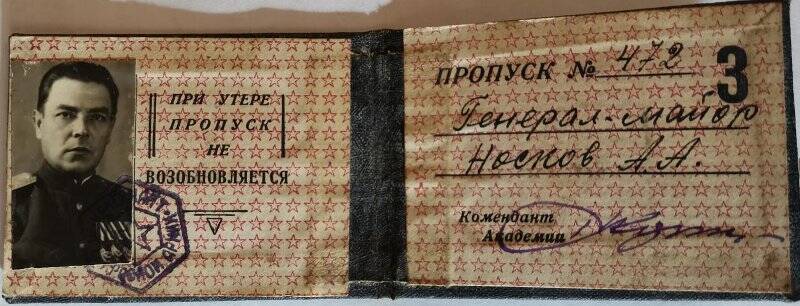 ПРИ УТЕРЕ
ПРОПУСК
НЕ
ВОЗОБНОВЛЯЕТСЯ
ПРОПУСК № 472
3
Генерал-майор
Носков А.А.
Комендант
Академии